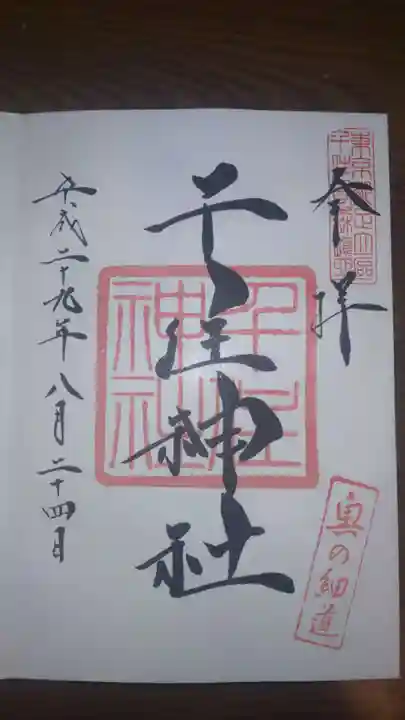 奉拝
東京都足立區
千住神社
千住
神社
奥の細道
平成二十九年八月二十四日